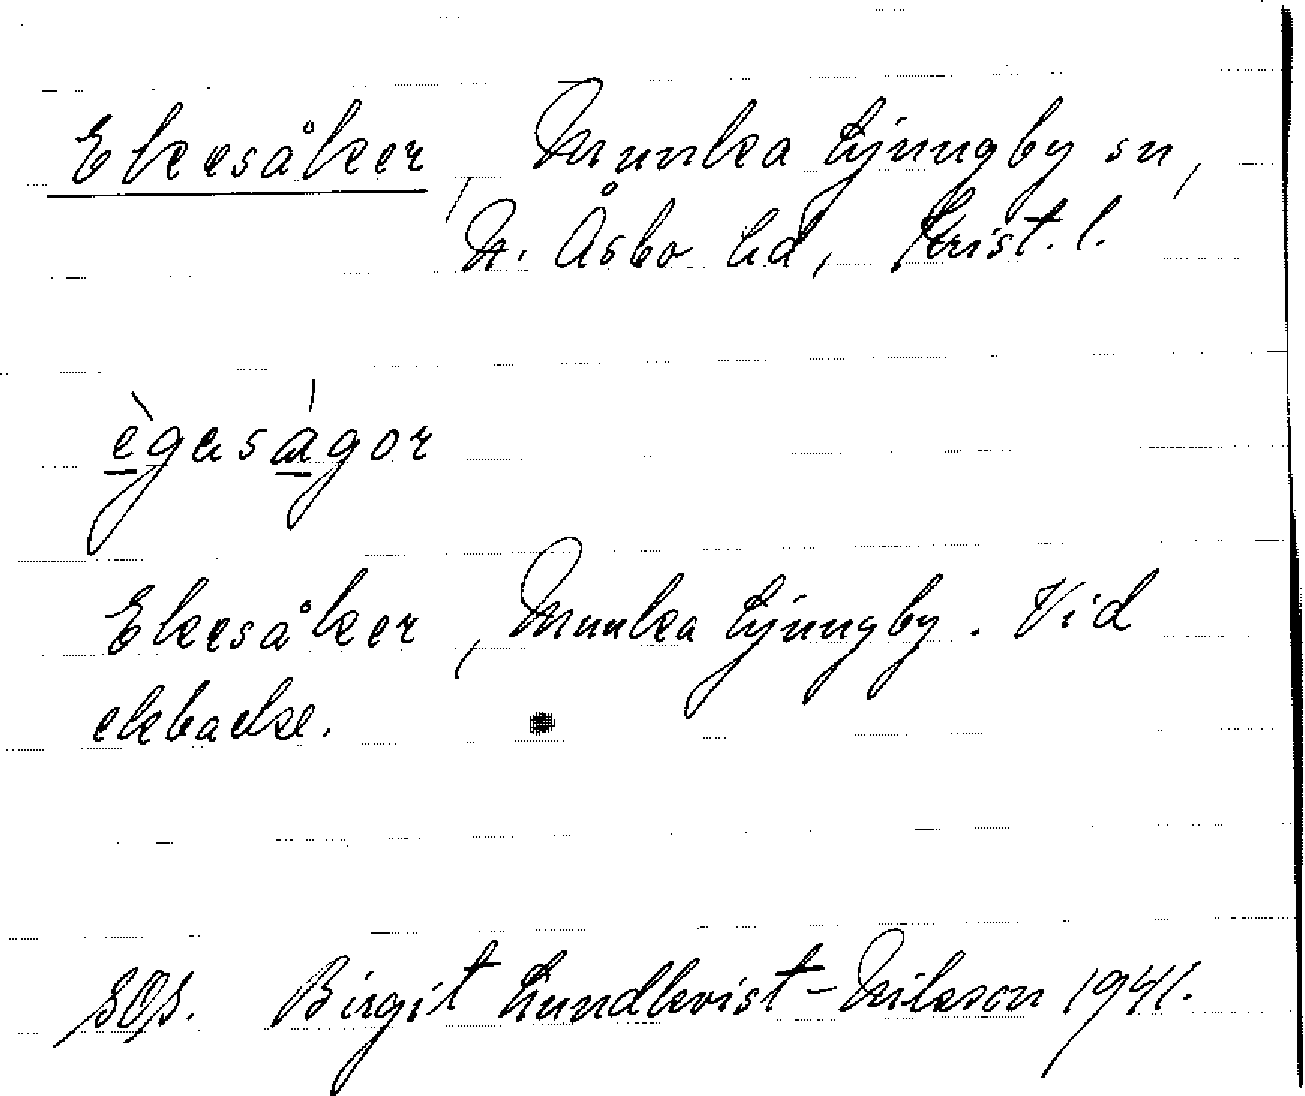 Ekesåker, Munka Ljungby sn,
N. Åsbo hd, Krist. l.
ègaságor
Ekesåker, Munka Ljungby. Vid
ekbacke.
SOS. Birgit Lundkvist-Nilsson 1941.